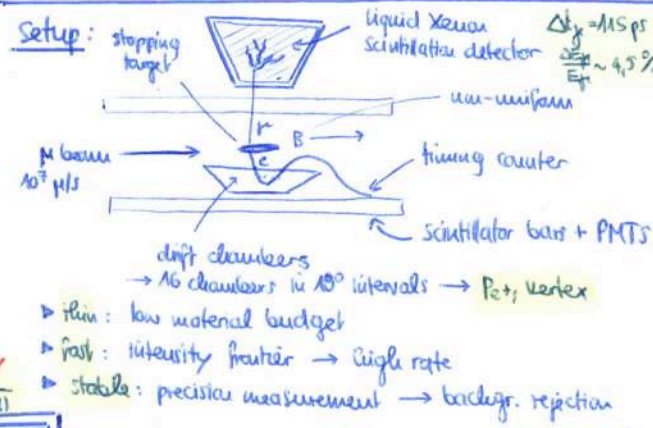 Setup:
stopping target
liquid Xenon scintillation detector
Δt_γ = 115 ps
ΔE_γ/E_γ ~ 4,5 %
non-uniform
γ
B →
e
μ beam
10⁷ μ/s
timing counter
scintillator bars + PMTs
drift chambers
→ 16 chambers in 10° intervals → Pe+, vertex
▶ thin: low material budget
▶ fast: intensity frontier → high rate
▶ stable: precision measurement → backgr. rejection